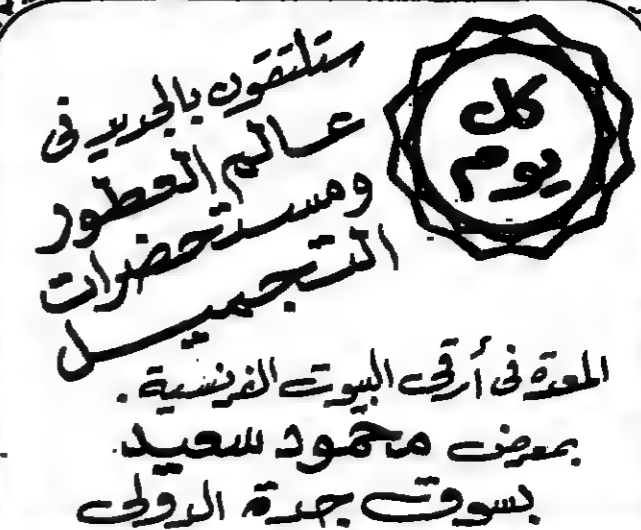 كل
يوم
ستلتقون بالجديد فى
عالم العطور
ومستحضرات
التجميل
المعدة فى أرقى البيوت الفرنسية .
بمعرض محمود سعيد.
بسوق جدة الدولى